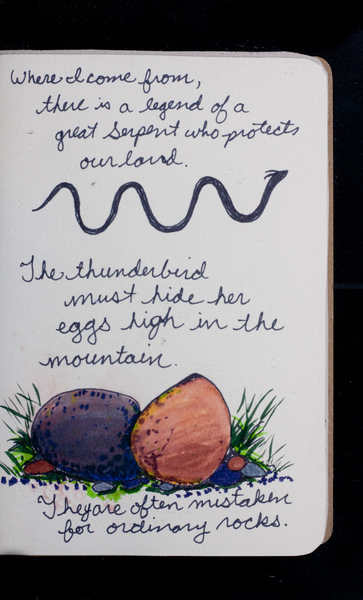 Where I come from,
there is a legend of a
great Serpent who protects
our land.
The thunderbird
must hide her
eggs high in the
mountain.
They are often mistaken
for ordinary rocks.